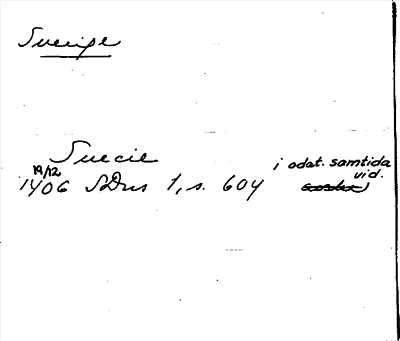 Sverige
Suecie
19/12 i odat. samtida
1406 SDns 1, s. 604 vid.